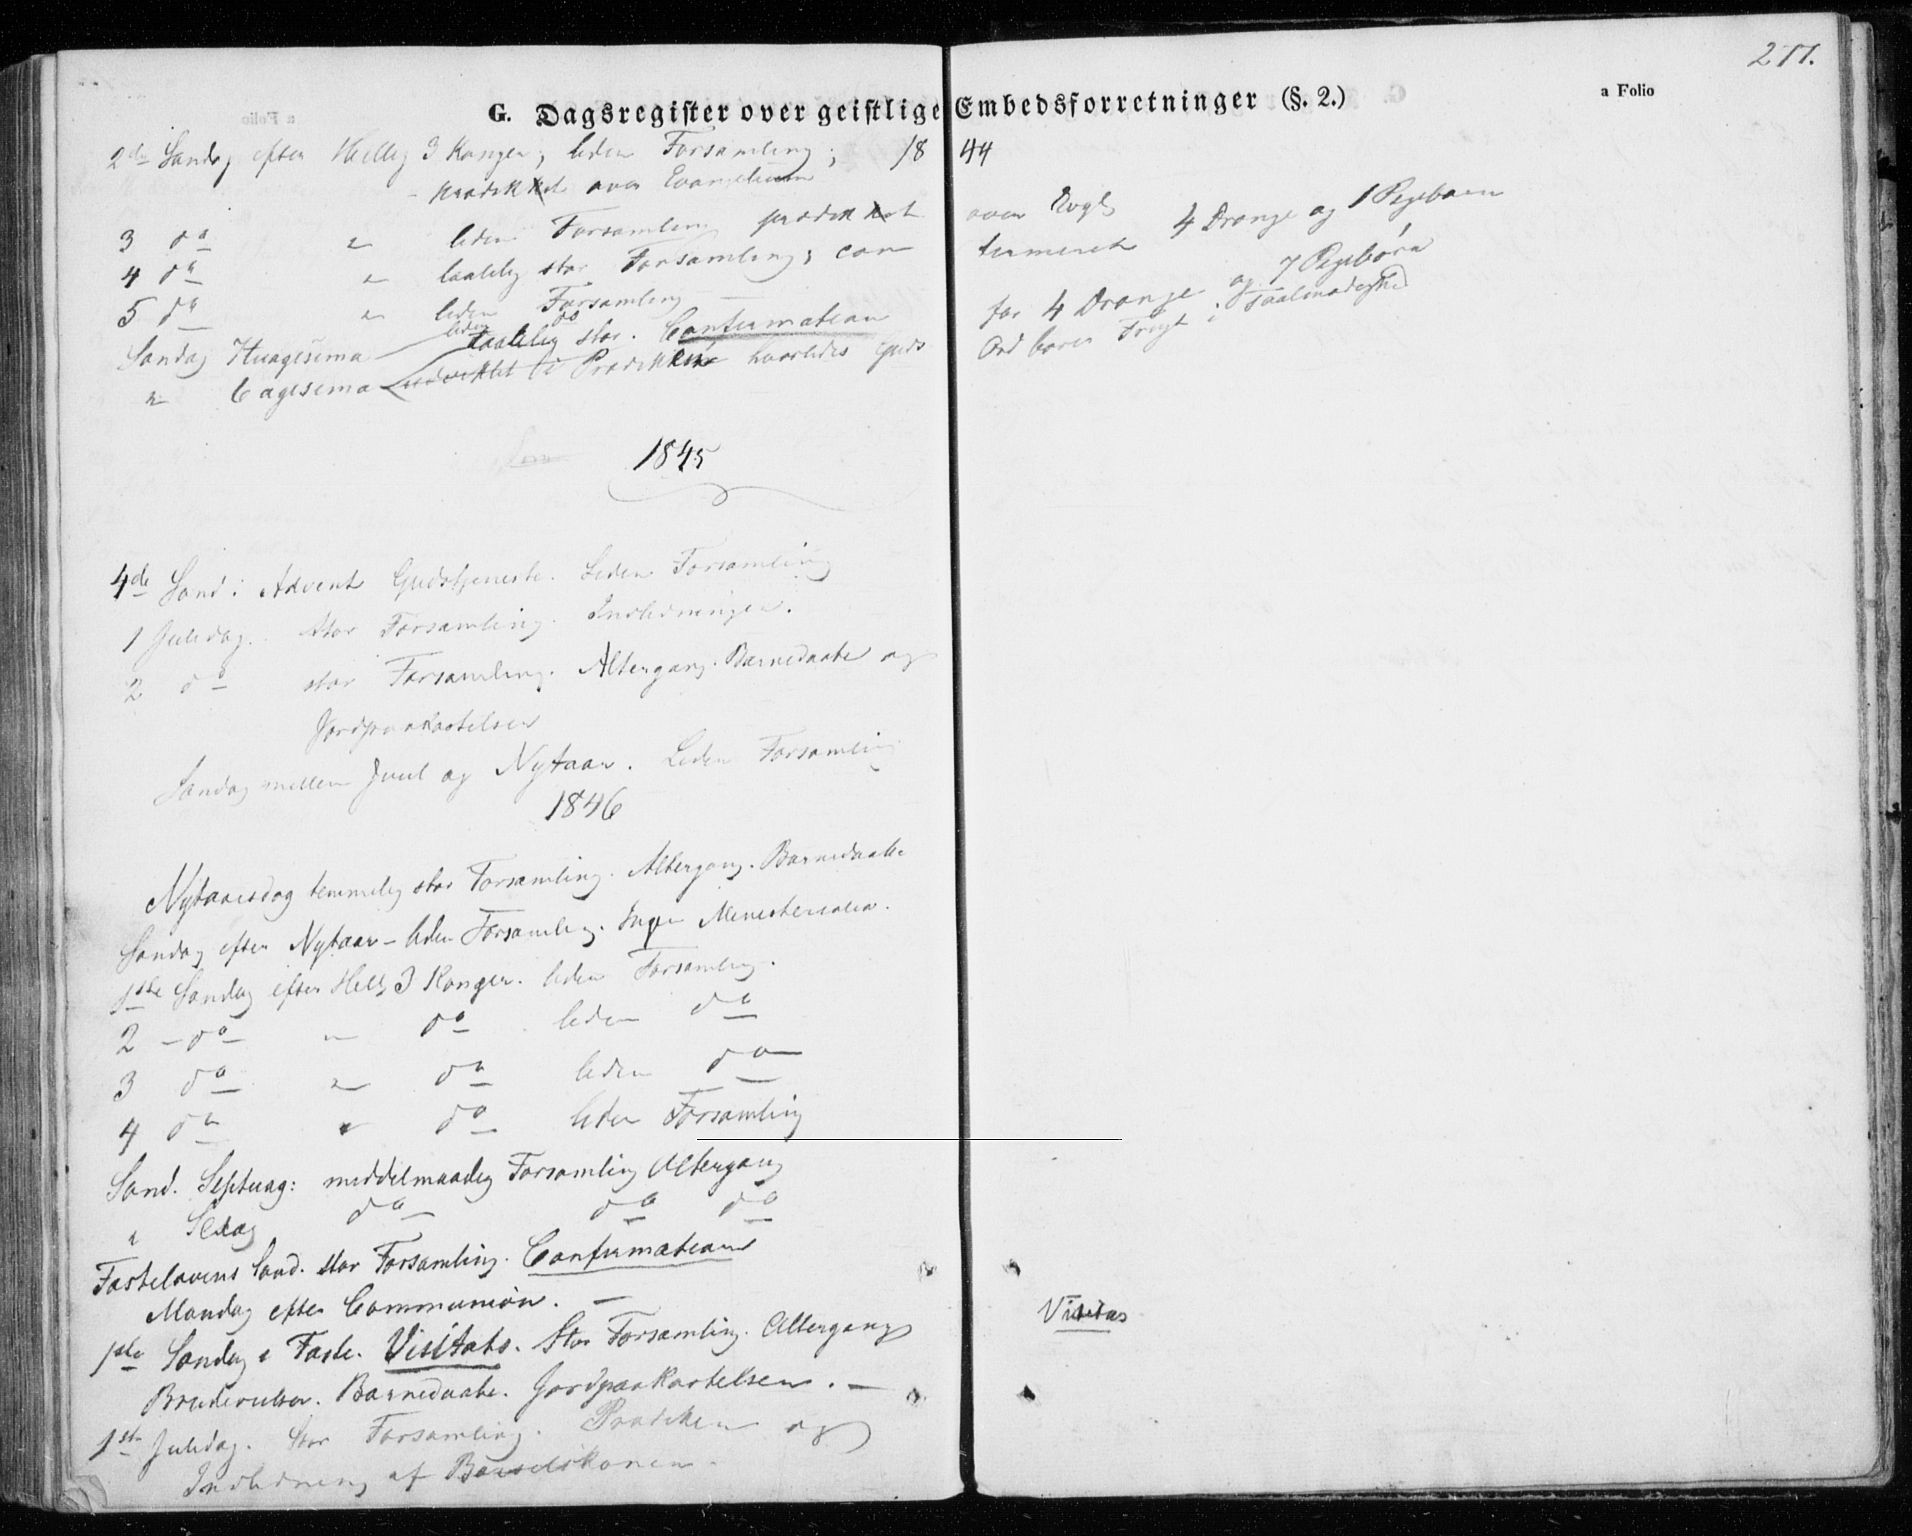 277.
a Folio
G. Dagsregister over geistlige Embedsforretninger (§. 2.)
2de Søndag efter Hellig 3 Konger, liden Forsamling; 18 44
prædikket over Evangelium
3 do " liden Forsamling prædikket over Evgl
4 do " taalelig stor Forsamling; con firmeret 4 Drenge og 1 Pigebarn
5 do " liden Forsamling for 4 Drenge og 7 Pigebørn
liden do
Søndag Huagesima taalelig stor. Confirmation
" 6agesima udviklet i Prædikken hvorledes Guds Ord bærer Frugt i Taalmodighed
1845
4de Sønd: Advent Gudstjeneste. Liden Forsamling
1 Juledag. stor Forsamling. Indledninger.
2 do stor Forsamling. Altergang. Barnedaabe og
Jordpaakastelser
Søndag mellem Juul og Nytaar. Liden Forsamling
1846
Nytaarsdag temmelig stor Forsamling. Altergang. Barnedaabe
Søndag efter Nytaar - liden Forsamling. Ingen Ministerialia.
1ste Søndag efter Hell 3 Konger. liden Forsamling.
2 - do " do liden do
3 do " do liden do
4 do " do liden Forsamling
Sønd. Septuag: middelmaadig Forsamling Altergang
" Sexag do do do
Fastelavens Sønd. stor Forsamling. Confirmation
Mandag efter Communion. -
1ste Søndag i Faste. Visitats. Stor Forsamling. Altergang
Visitas
Brudevielser. Barnedaabe. Jordpaakastelser. -
1ste Juledag. Stor Forsamling. Prædiken og
Indledning af Barselskoner.